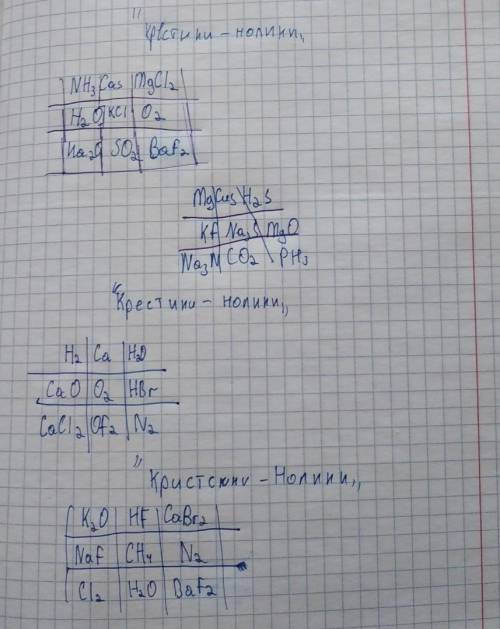 "Крестики-нолики"
NH₃ CaS MgCl₂
H₂O KCl O₂
Na₂O SO₂ BaF₂
Mg CuS H₂S
KF Na₂S MgO
Na₃N CO₂ PH₃
"Крестики-нолики"
H₂ Ca H₂O
CaO O₂ HBr
CaCl₂ OF₂ N₂
"Кристскики-Нолики"
K₂O HF CaBr₂
NaF CH₄ N₂
Cl₂ H₂O BaF₂